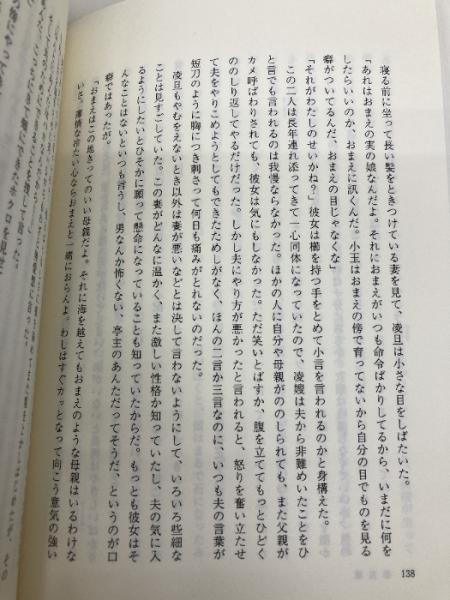 寝る前に坐って長い髪をときつけている妻を見て、凌旦は小さな目をしばたいた。
「あれはおまえの実の娘なんだよ。それにおまえがいつも命令ばかりしてるから、いまだに何を
したらいいのか、おまえに訊くんだ。小玉はおまえの傍で育ってないから自分の目でものを見る
癖がついてるんだ、おまえの目じゃなくな」
「それがわたしのせいかね?」彼女は櫛を持つ手をとめて小言を言われるのかと身構えた。
この二人は長年連れ添ってきて一心同体になっていたので、凌嫂は夫から非難めいたことをひ
と言でも言われるのは我慢ならなかった。ほかの人に自分や母親がののしられても、また父親が
カメ呼ばわりされても、彼女は気にもしなかった。ただ笑いとばすか、腹を立ててもっとひどく
ののしり返してやるだけだった。しかし夫にやり方が悪かったと言われると、怒りを奮い立たせ
て夫をやりこめようとしてもできたためしがなく、ほんの二言か三言なのに、いつも夫の言葉が
短刀のように胸につき刺さって何日も痛みがとれないのだった。
凌旦もやむをえないとき以外は妻が悪いなどとは決して言わないようにして、いろいろ些細な
ことは見すごしていた。この妻がどんなに温かく、また激しい性格か知っていたし、夫の気に入
るようにしたいとひそかに願って懸命になっていることも知っていたからだ。もっとも彼女はそ
んなことはないといつも言うし、男なんか怖くない、亭主のあんただってそうだ、というのが口
癖ではあったが。
「おまえはこの地きってのいい母親だよ。それに海を越えてもおまえのような母親はいるわけな
いさ。薄情な冷たい心ならおまえと一緒におらんよ。わしはすぐかっとなって向こう意気の強い
138